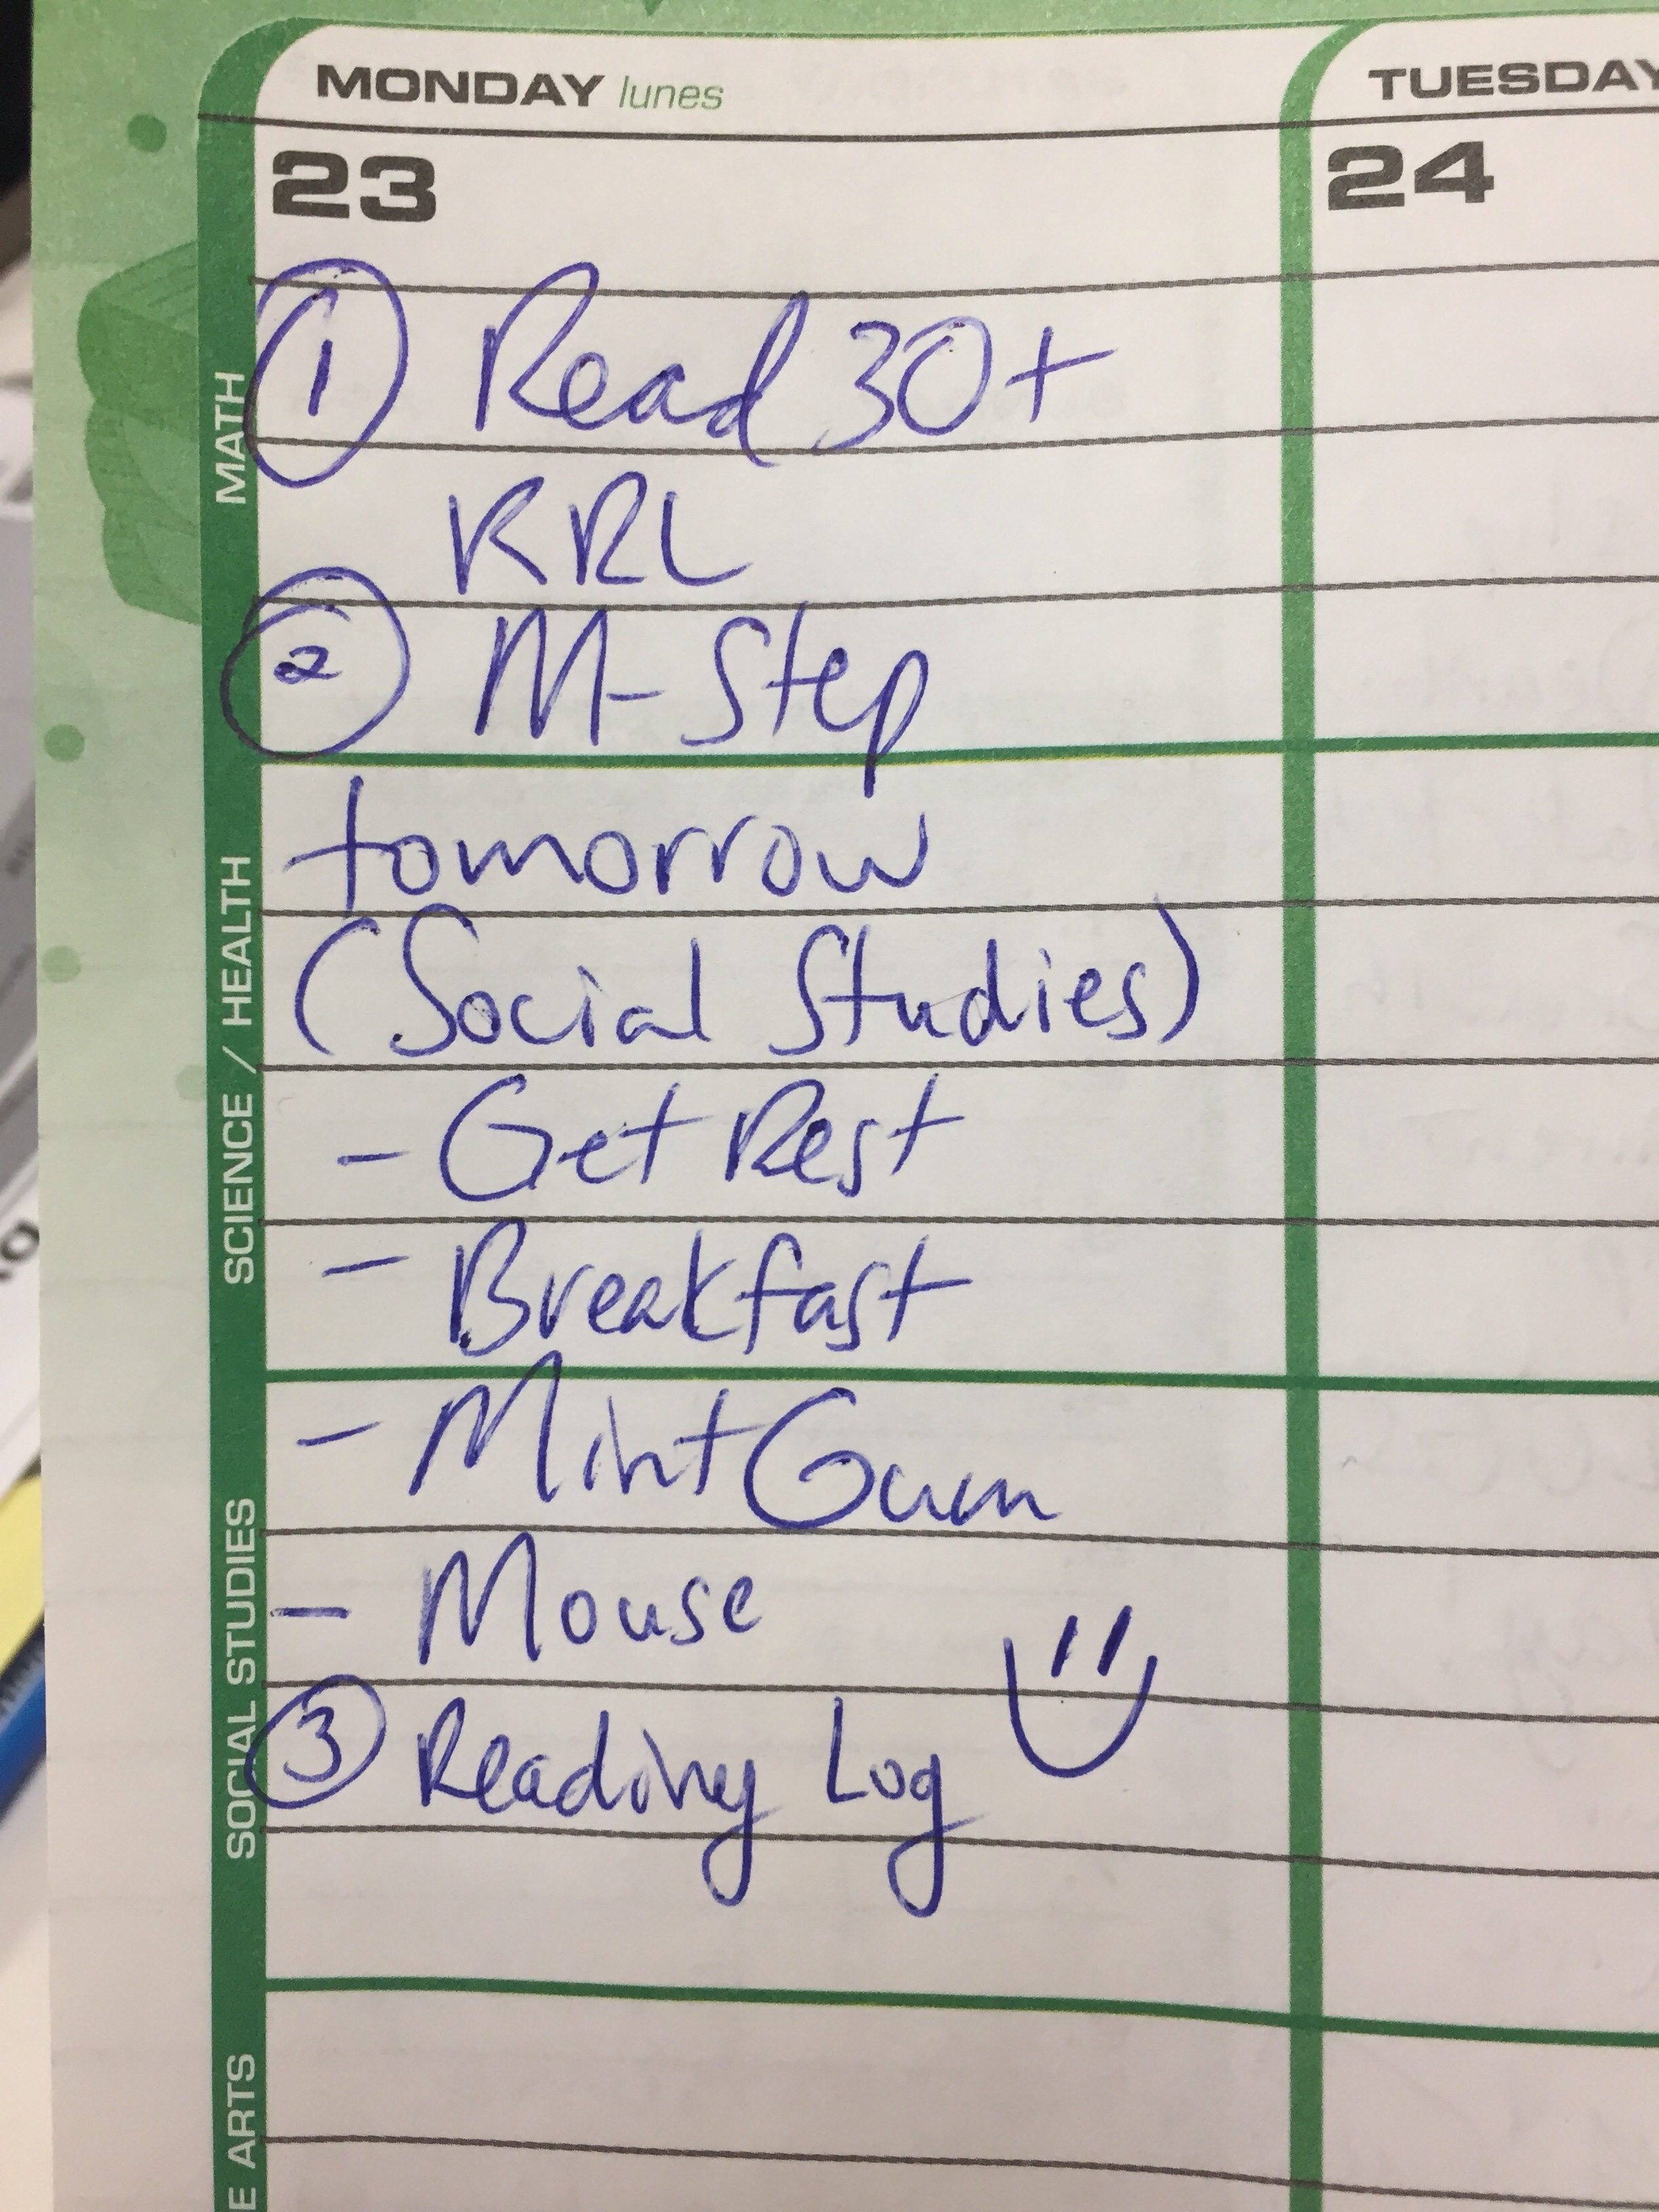 MONDAY lunes
TUESDAY
23
24
① Read 30+
RRL
② M-Step
tomorrow
(Social Studies)
- Get Rest
- Breakfast
- Mint Gum
- Mouse
③ Reading Log
MATH
SCIENCE / HEALTH
SOCIAL STUDIES
E ARTS